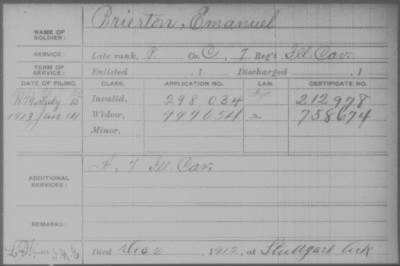 NAME OF SOLDIER: Brierton, Emanuel
SERVICE: Late rank, P. Co. C, 7 Reg't Ill. Cav.
TERM OF SERVICE: Enlisted , 1 Discharged , 1
DATE OF FILING. CLASS. APPLICATION NO. LAW. CERTIFICATE NO.
1879, July 15 Invalid, 298 034 212,978
1913, Jan 14 Widow, 999654 758674
Minor,
ADDITIONAL SERVICES: A, 7 Ill. Cav.
REMARKS:
Died Dec 2, 1912, at Stuttgart Ark